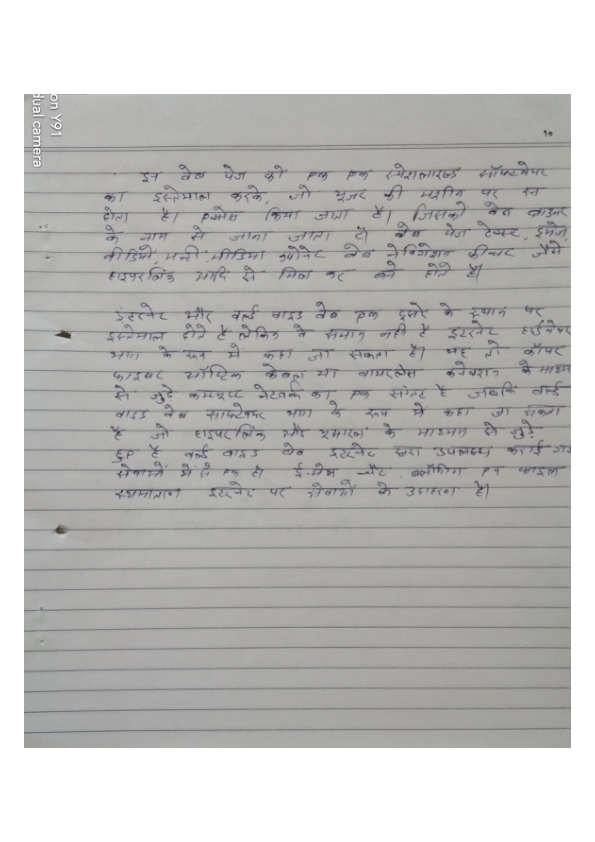 on Y91
dual camera
१०
इन वेब पेज को एक एक स्पेशलाइज्ड सॉफ्टवेयर
का इस्तेमाल करके, जो यूजर की मशीन पर रन
होता है। एक्सेस किया जाता है। जिसको वेब ब्राउजर
के नाम से जाना जाता है। वेब पेज टेक्स्ट, इमेज,
वीडियो, मल्टीमीडिया कंपोनेंट वेब नेविगेशन फीचर जैसे
हाइपरलिंक आदि से मिल कर बने होते हैं।
इंटरनेट और वर्ल्ड वाइड वेब एक दूसरे के स्थान पर
इस्तेमाल होते है लेकिन वे समान नही है इंटरनेट हार्डवेयर
भाग के रूप में कहा जा सकता है। यह तो कॉपर
फाइबर ऑप्टिक केबल या वायरलेस कनेक्शन के माध्यम
से जुड़े कम्प्यूटर नेटवर्क का एक है जबकि वर्ल्ड
वाइड वेब साफ्टवेयर भाग के रूप में कहा जा सकता
है जो हाइपरलिंक और के माध्यम से जुड़े
हुए है वर्ल्ड वाइड वेब इंटरनेट द्वारा उपलब्ध कराई गई
सेवाओं में से एक है। ई-मेल चैट, फाइल
स्थानांतरण इंटरनेट पर सेवाओं के उदाहरण है।